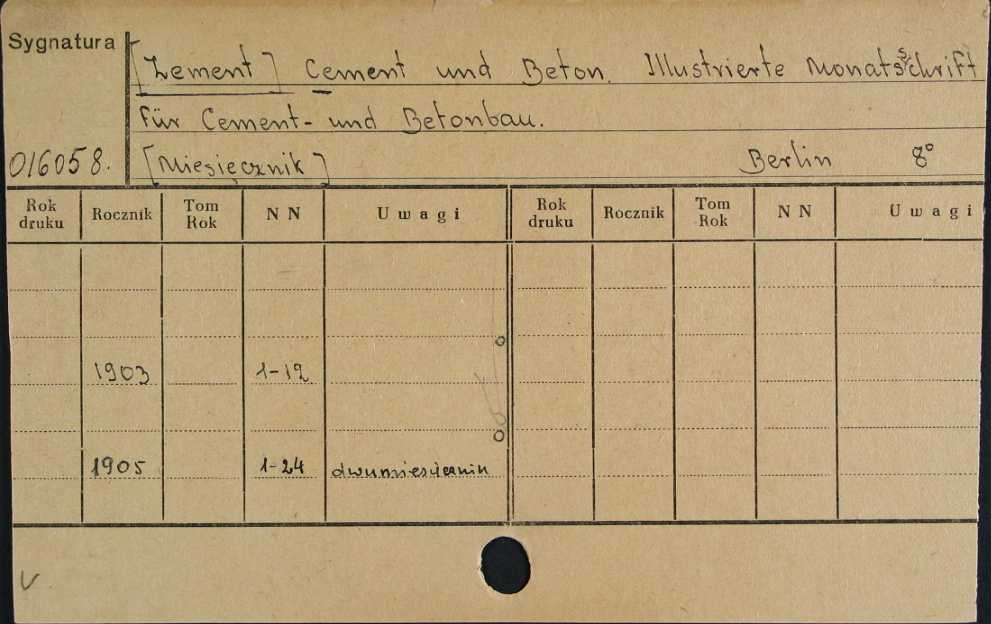 Sygnatura
[Zement] Cement und Beton. Illustrierte Monatsschrift
für Cement- und Betonbau.
016058. [Miesięcznik] Berlin 8°
Rok druku Rocznik Tom Rok NN Uwagi Rok druku Rocznik Tom Rok NN Uwagi
1903 1-12
1905 1-24 dwumiesięcznik
V